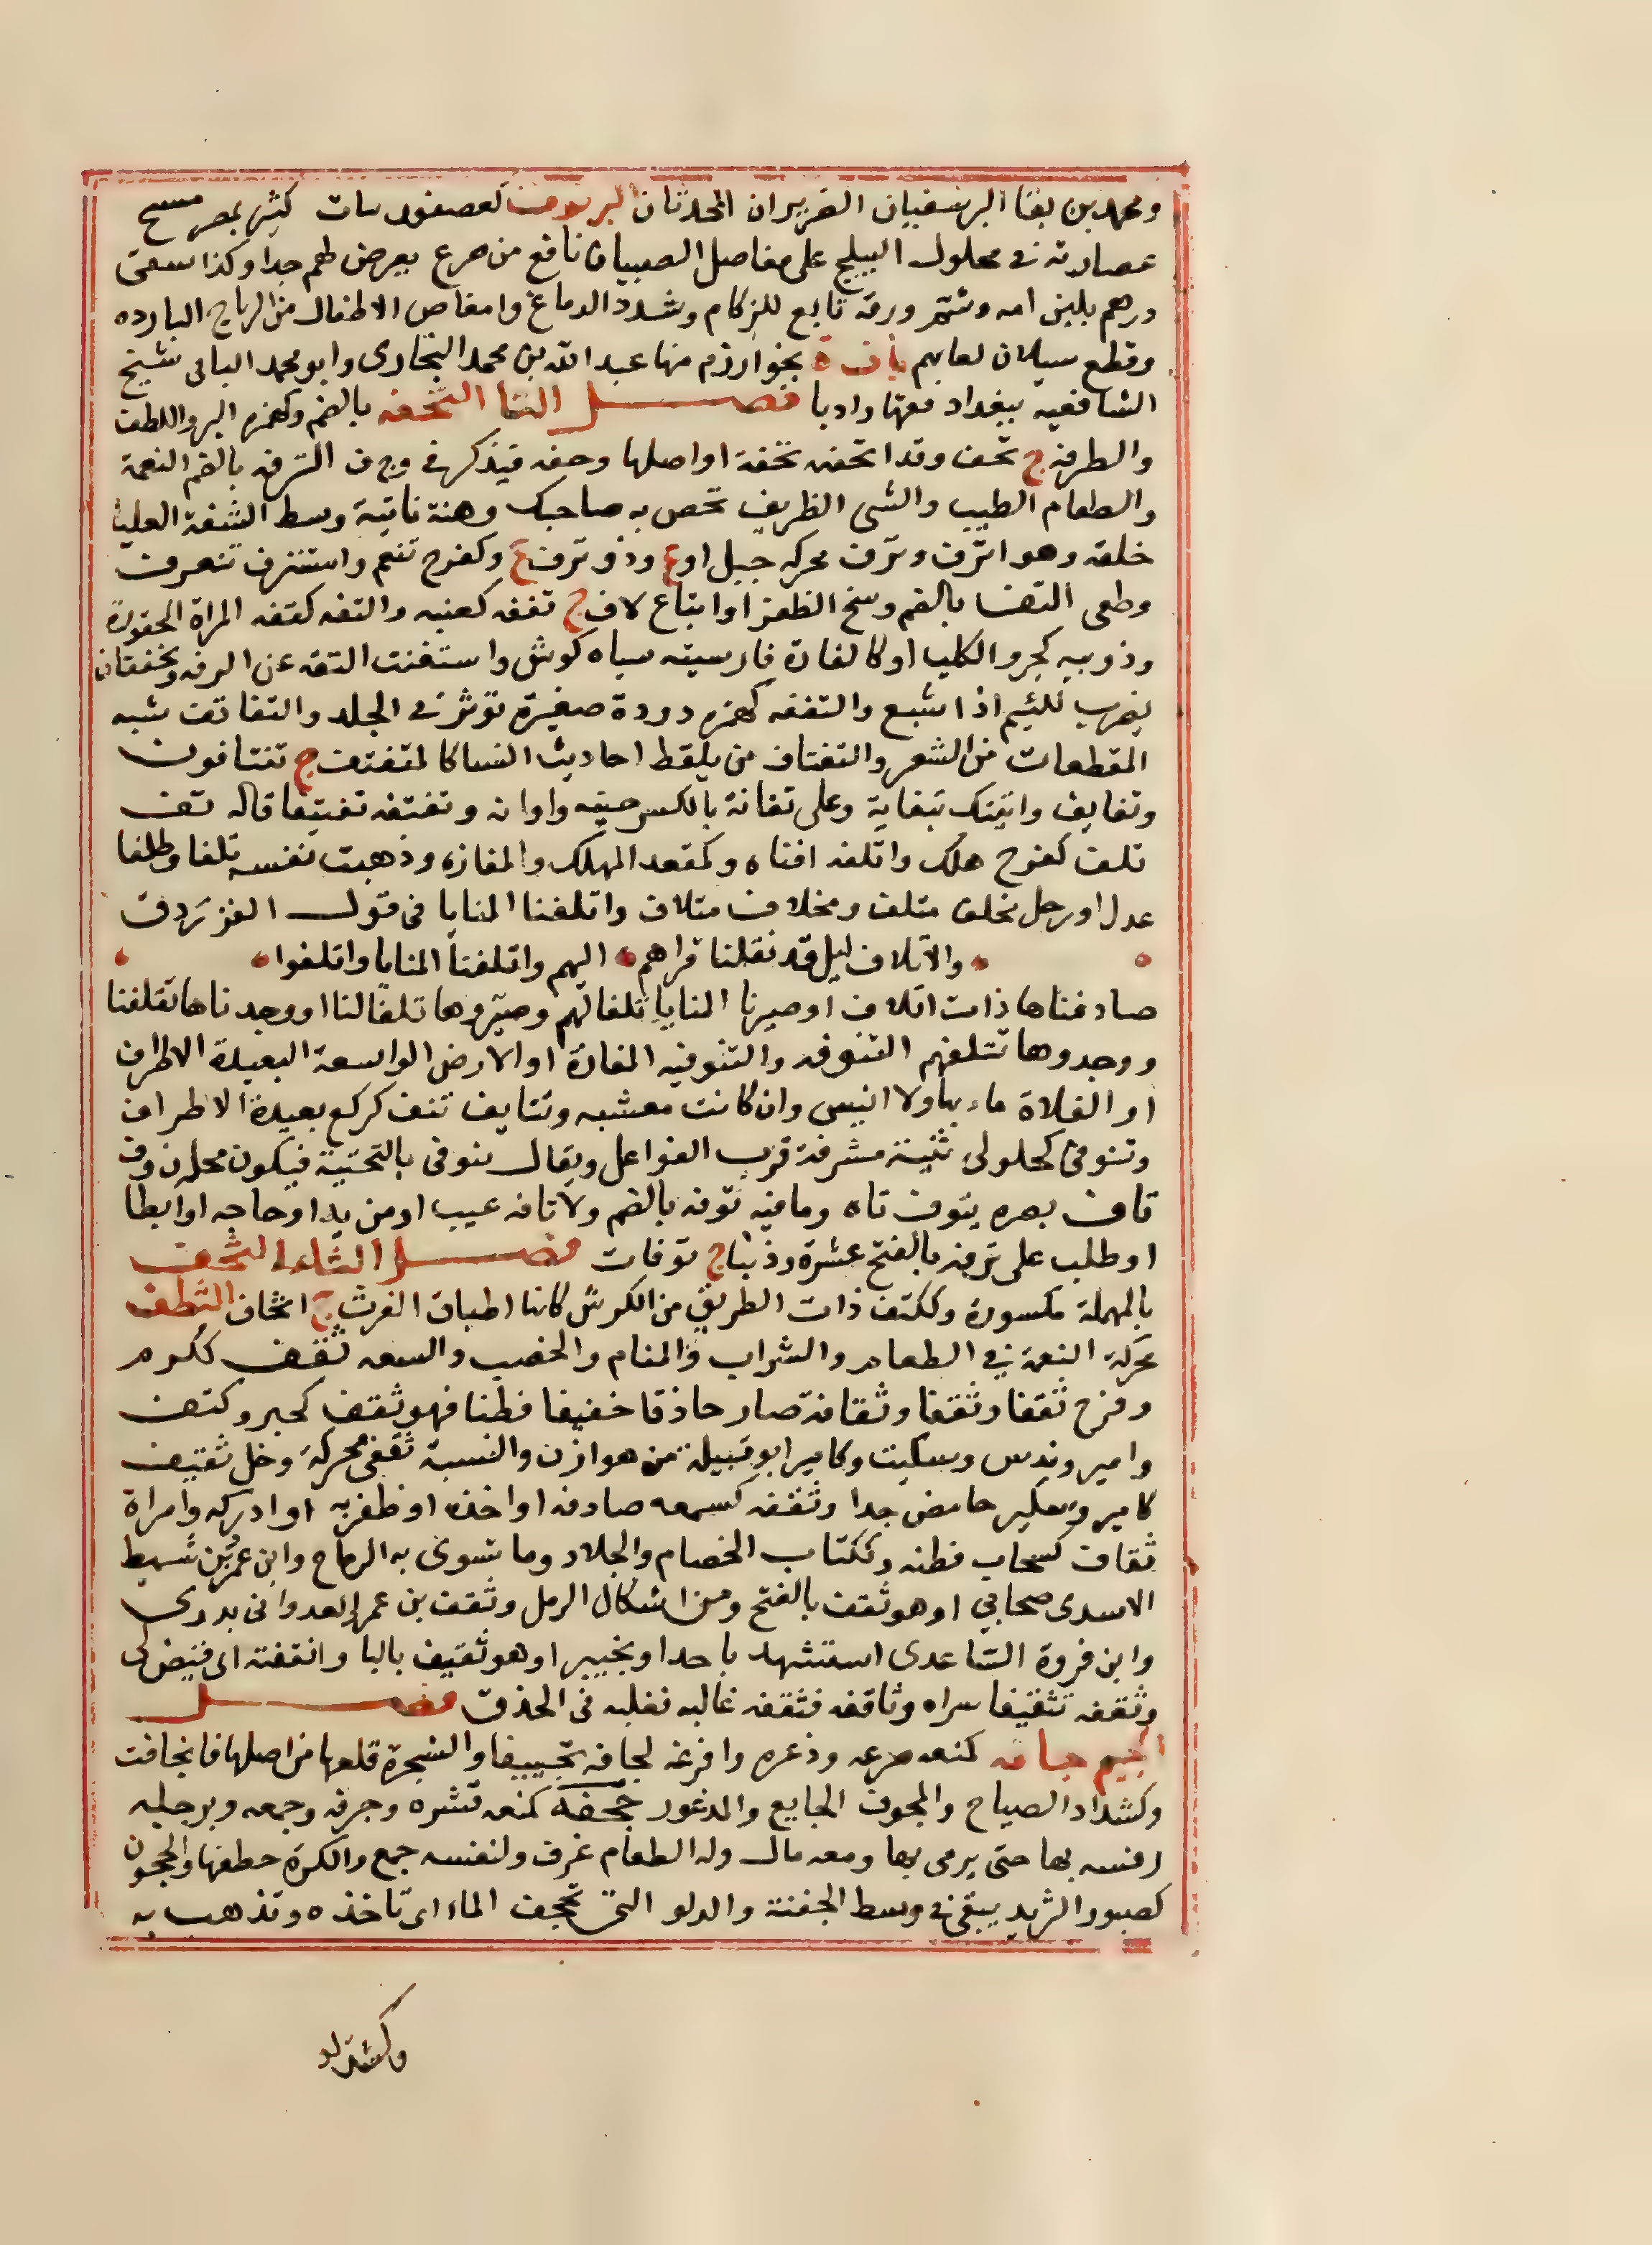 ومحمد بن بقا البرسفيان الضريران المحدثان البرنوف كعصفور نبات كثير بمصر مسح
عصارته في محلول البيلج على مفاصل الصبيان نافع من صرع يعرض لهم جدا وكذا سقى
درهم بلبن امه وشم ورقه نافع للزكام وشدد الدماغ وامغاص الاطفال من الرياح الباردة
وقطع سيلان لعابهم بافة بخوارزم منها عبد الله بن محمد البخارى وابو محمد البافى شيخ
الشافعيه ببغداد فقها وادبا فصل التا التحفه بالضم وكهمزه البر واللطف
والطرفه ج تحف وقد اتحفه تحفة او اصلها وحفه فيذكر في وح ف الترفه بالضم النعمة
والطعام الطيب والشى الظريف تخص به صاحبك وهنة ناتية وسط الشفة العليا
خلقه وهو اترف وترف محركه جبل او ع وذو ترف ع وكفرح تنعم واستترف تتعرف
وطغى التف بالضم وسخ الظفر او اتباع لاف ج تففه كعنبه والتفه كقفه المراة المحقورة
وذويبه كجرو الكلب او كالفارة فارسيته سياه كوش واستغنت التفه عن الرفه ويخففان
يضرب للئيم اذا شبع والتففه كهمزه دودة صغيرة توثر في الجلد والتفاتف شبه
المقطعات من الشعر والتفتاف من يلقط احاديث النسا كالمتفتف ج تفتافون
وتفايف واتيتك بتفاية وعلى تفانة بالكسر حينه واوانه وتفتفه تفتيفا قال تف
تلف كفرح هلك واتلفه افناه وكمقعد المهلك والمفازه وذهبت نفسه تلفا وطلفا
عدل اورجل مخلف متلف ومخلاف متلاف واتلفنا المنايا فى قول الفرزدق
والاتلاف ليل قد نقلنا قراهم اليهم واتلفنا المنايا واتلفوا
صادفناها ذات اتلاف او صيرنا المنايا تلفا لهم وصيروها تلفا لنا او وجدناها تتلفنا
ووجدوها تتلفهم التنوفه والتنوفيه المفازة او الارض الواسعة البعيدة الاطراف
او الفلاة ماء بها ولا انيس وان كانت معشبه وتنايف تنف كركع بعيدة الاطراف
وتنوفى كجلولى ثنية مشرفة قرب القواعل ويقال ينوفى بالتحتية فيكون محله ن وف
تاف بصره يتوف تاه وما فيه توفه بالضم ولا تافه عيب او مزيد او حاجه او ابطا
او طلب على توفه بالفتح عشرة وذنبا ج توفات فصل الثاء الثحف
بالمهملة مكسورة وككتف ذات الطريق من الكرش كانها اطباق الفرث ج اثحاف الثطف
محركة النعمة في الطعام والشراب والمنام والخصب والسعه ثقف ككرم
وفرح ثقفا وثقفا وثقافة صار حاذقا خفيفا فطنا فهو ثقف كحبر وكتف
وامير وندس وسكيت وكامير ابو قبيلة من هوازن والنسبة ثقفى محركة وخل ثقيف
كامير وسكير حامض جدا وثقفه كسمعه صادفه او اخذه او ظفر به او ادركه وامراة
ثقاف كسحاب فطنه وككتاب الخصام والجلاد وما تسوى به الرماح وابن عمرو بن شميط
الاسدى صحابي او هو ثقف بالفتح ومن اشكال الرمل وثقف بن عمرو العدوانى بدرى
وابن فروة الساعدى استشهد باحد او بخيبر او هو ثقيف باليا واثقفته اى قيض لى
وثقفه تثقيفا سواه وثاقفه فثقفه غالبه فغلبه فى الحذق فصل
الجيم جافه كمنعه صرعه وذعره وافزعه لجافه تجييفا والشجرة قلعها من اصلها فانجافت
وكشداد الصياح والمجوف الجايع والمذعور جحفه كمنعه قشره وجرفه وجمعه وبرجليه
رفسه بها حتى يرمى بها ومعه مال وله الطعام غرف ولنفسه جمع والكرة خطفها والجحوف
كصبور الثريد يبقى في وسط الجفنة والدلو التى تجحف الماء اى تاخذه وتذهب به